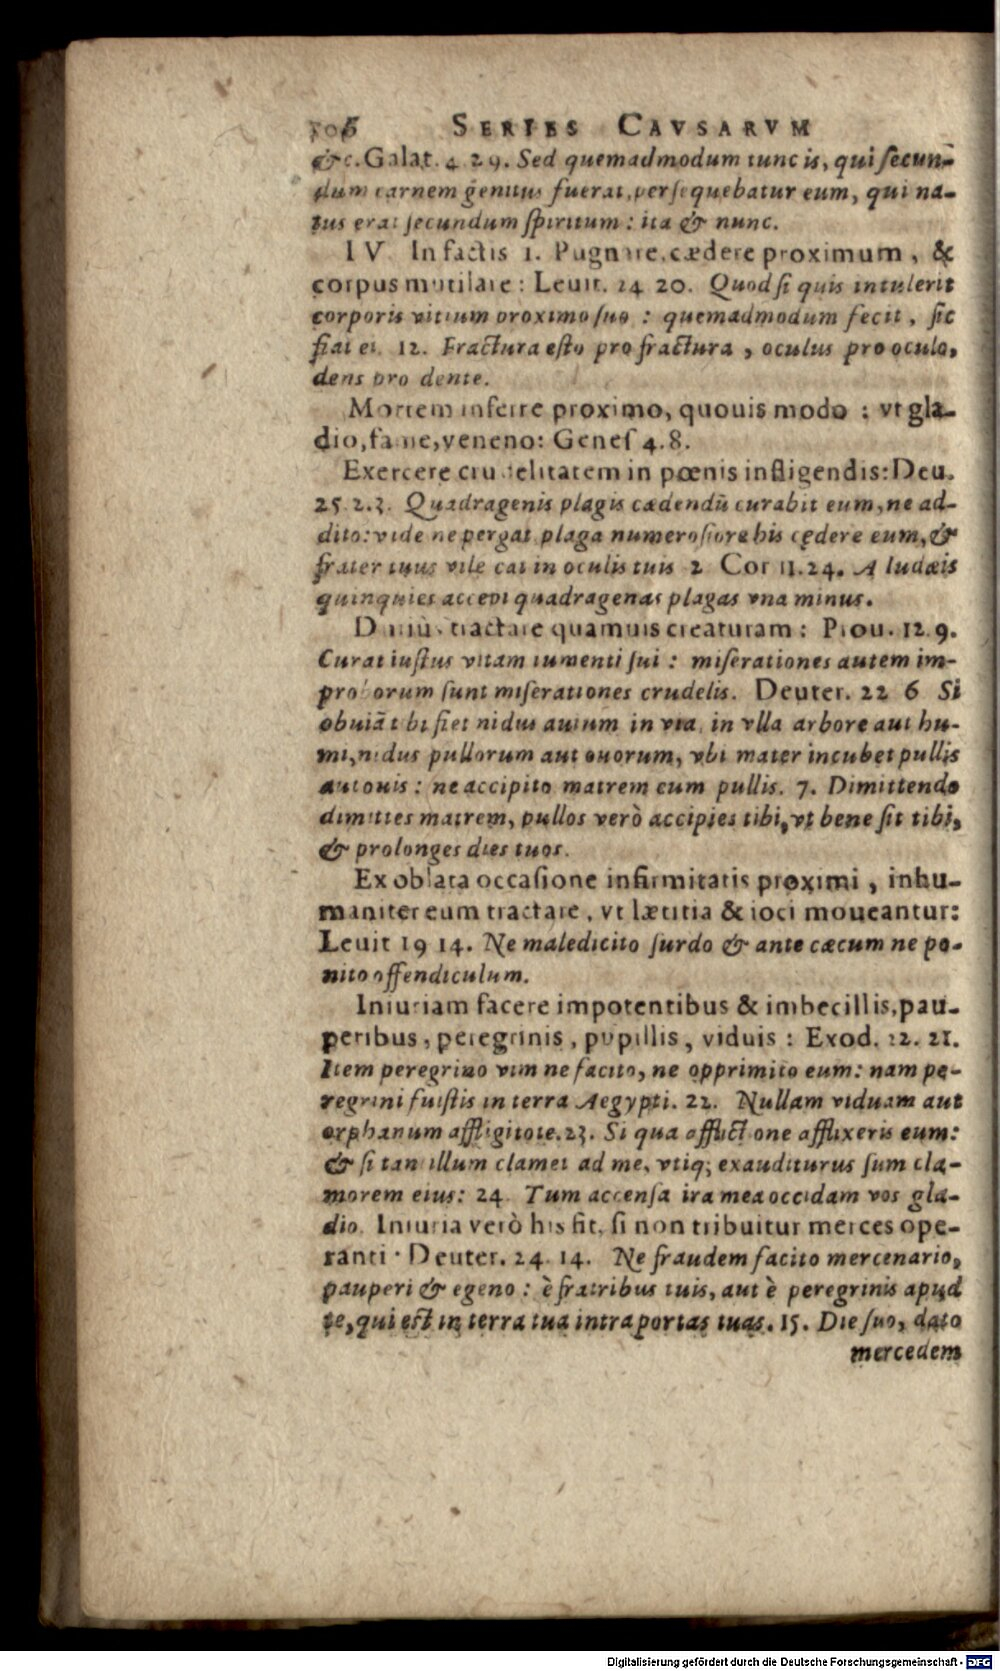 SERIES CAVSARVM
&c. Galat. 4 29. Sed quemadmodum tunc is, qui secun-
dum carnem genitus fuerat, persequebatur eum, qui na-
tus erat secundum spiritum: ita & nunc.
IV In factis 1. Pugnare, cædere proximum, &
corpus mutilare: Leuit. 24 20. Quod si quis intulerit
corporis vitium proximo suo: quemadmodum fecit, sic
fiat ei. 12. Fractura esto pro fractura, oculus pro oculo,
dens pro dente.
Mortem inferre proximo, quouis modo: vt gla-
dio, fame, veneno: Genes 4.8.
Exercere crudelitatem in pœnis infligendis: Deu.
25.2.3. Quadragenis plagis cædendū curabit eum, ne ad-
dito: vide ne pergat plaga numerosiore his cędere eum, &
frater tuus vile cat in oculis tuis 2 Cor 11.24. A Iudæis
quinquies accepi quadragenas plagas vna minus.
tractare quamuis creaturam: Prou. 12 9.
Curat iustus vitam iumenti sui: miserationes autem im-
proborum sunt miserationes crudelis. Deuter. 22 6 Si
obuiā tibi fiet nidus auium in via, in vlla arbore aut hu-
mi, nidus pullorum aut ouorum, vbi mater incubet pullis
aut ouis: ne accipito matrem cum pullis. 7. Dimittendo
dimittes matrem, pullos verò accipies tibi, vt bene sit tibi,
& prolonges dies tuos.
Ex oblata occasione infirmitatis proximi, inhu-
maniter eum tractare, vt lætitia & ioci moueantur:
Leuit 19 14. Ne maledicito surdo & ante cæcum ne po-
nito offendiculum.
Iniuriam facere impotentibus & imbecillis, pau-
peribus, peregrinis, pupillis, viduis: Exod. 22. 21.
Item peregrino vim ne facito, ne opprimito eum: nam pe-
regrini fuistis in terra Aegypti. 22. Nullam viduam aut
orphanum affligitote. 23. Si qua afflictione afflixeris eum:
& si tantillum clamet ad me, vtiq; exauditurus sum cla-
morem eius: 24. Tum accensa ira mea occidam vos gla-
dio. Iniuria verò his fit, si non tribuitur merces ope-
ranti. Deuter. 24. 14. Ne fraudem facito mercenario,
pauperi & egeno: è fratribus tuis, aut è peregrinis apud
te, qui est in terra tua intra portas tuas. 15. Die suo, dato
mercedem
Digitalisierung gefördert durch die Deutsche Forschungsgemeinschaft - DFG